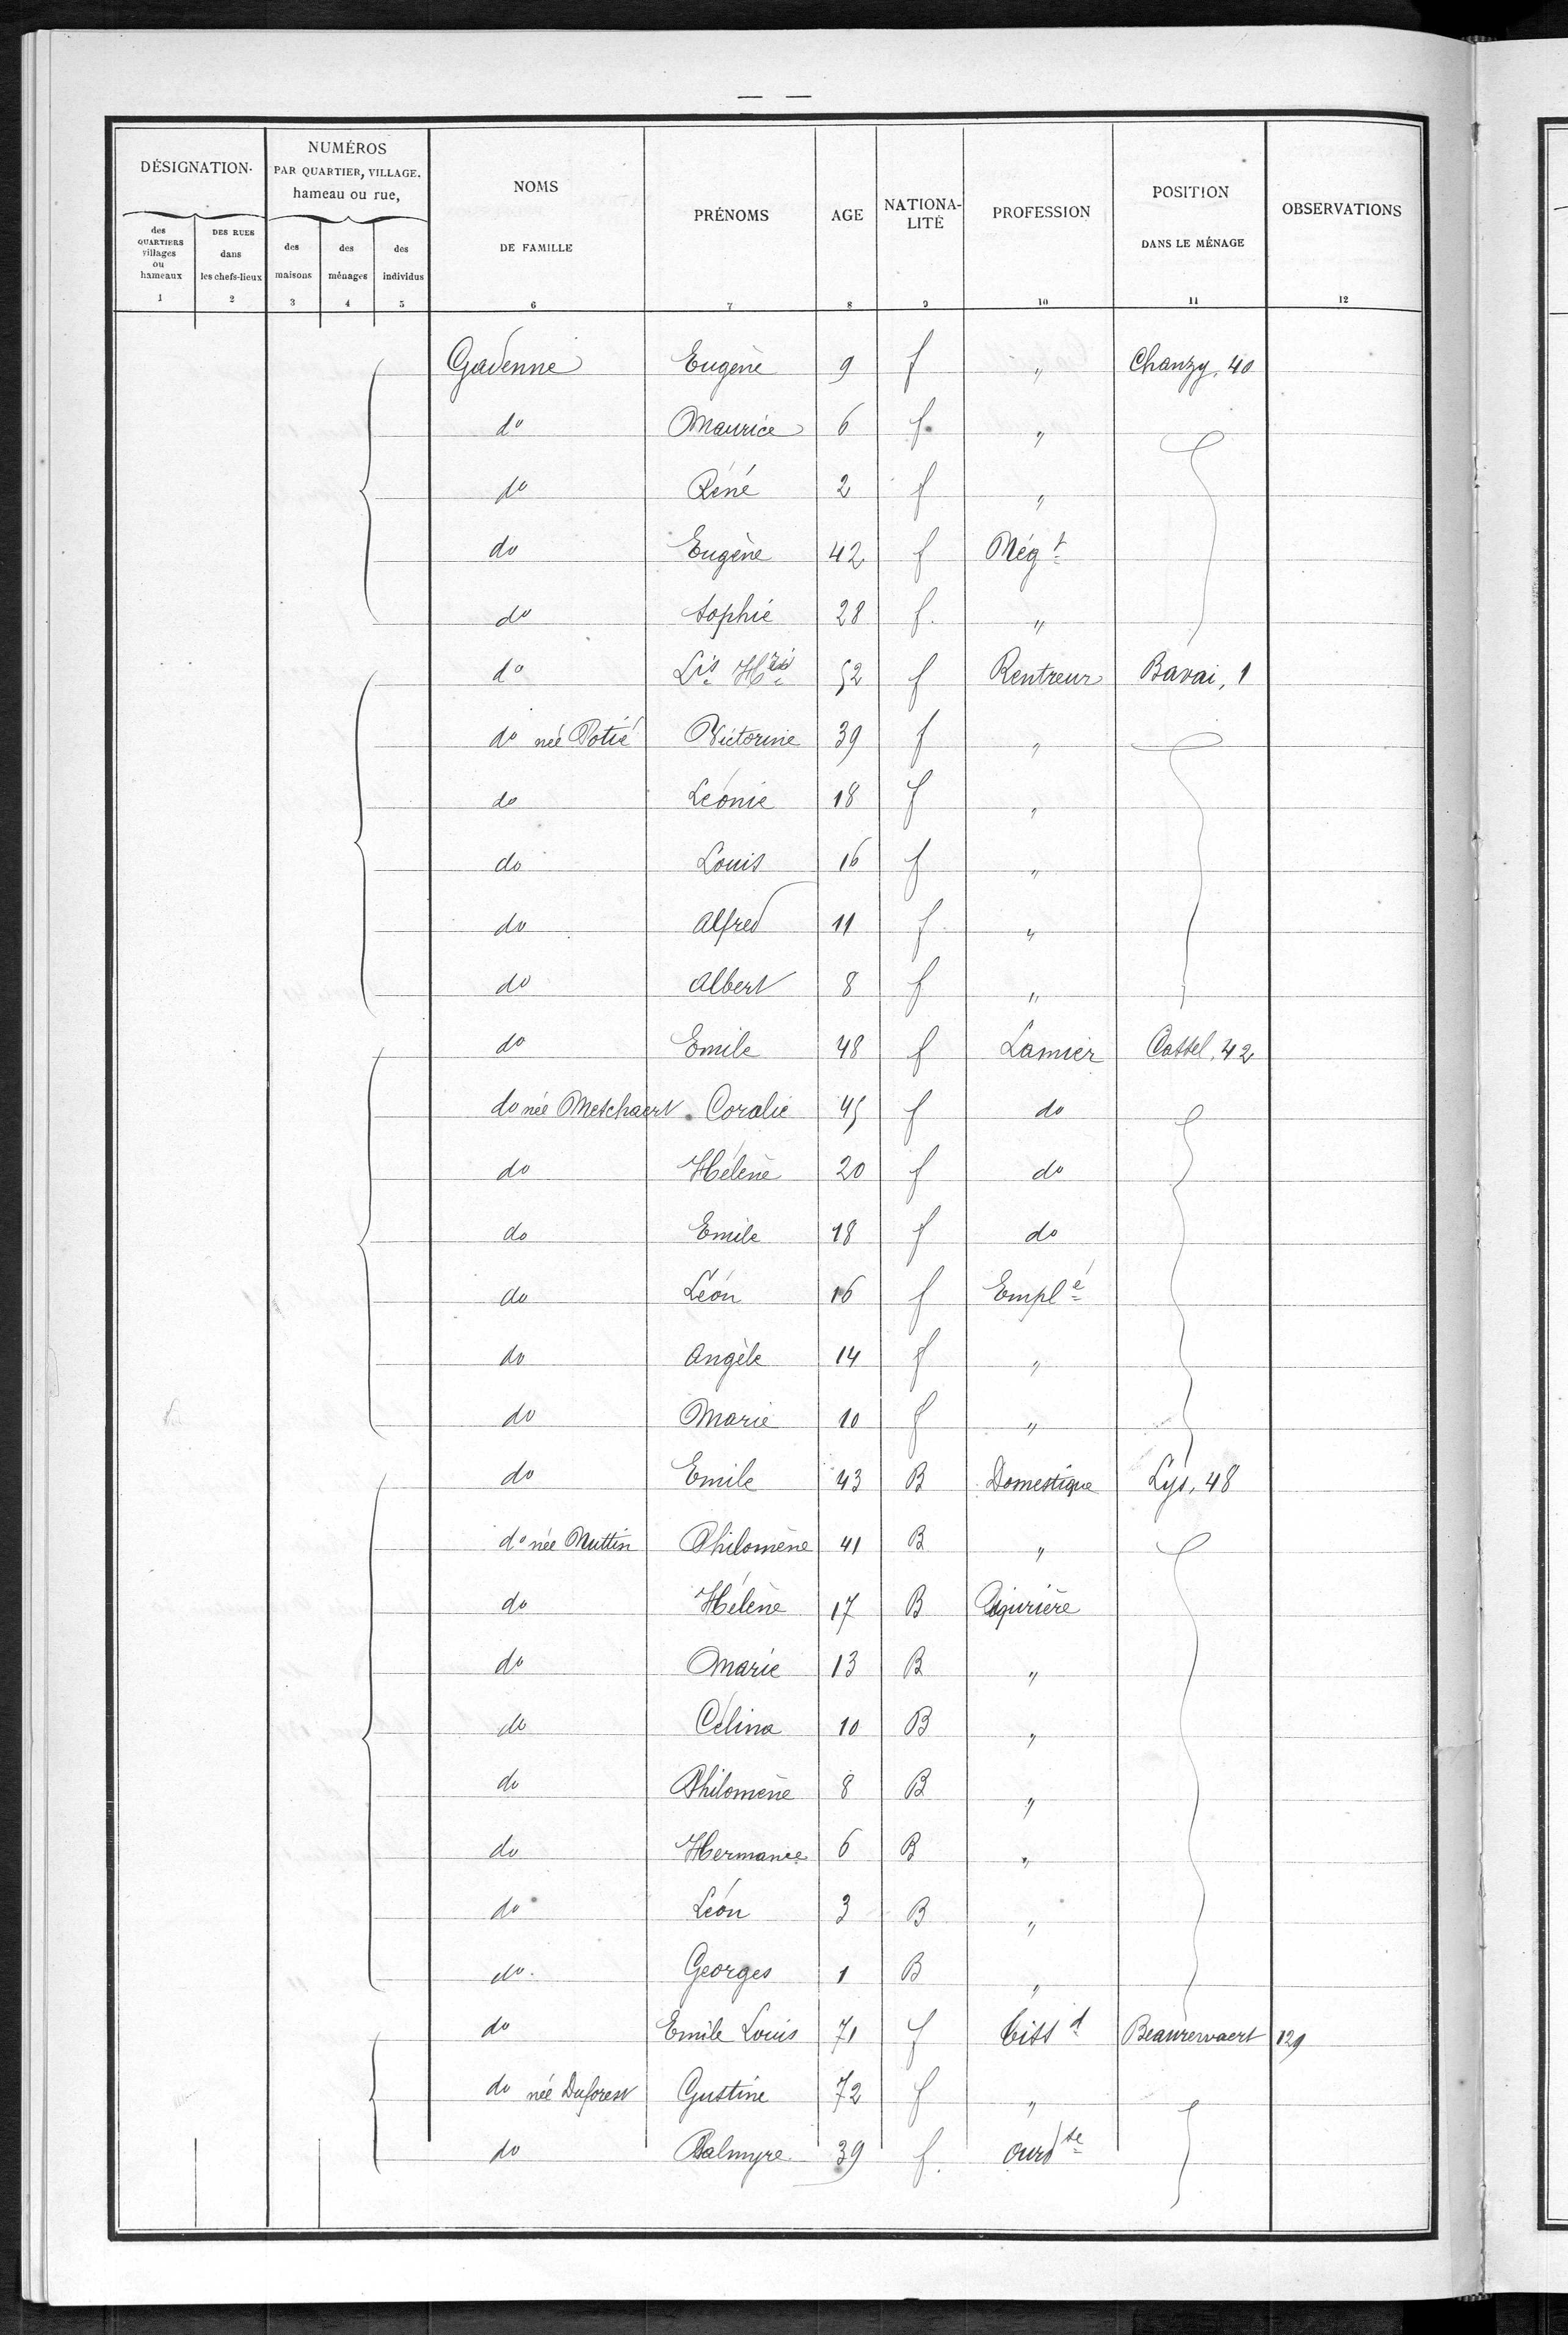 DÉSIGNATION.
NUMÉROS
PAR QUARTIER, VILLAGE.
hameau ou rue,
des QUARTIERS villages ou hameaux
DES RUES dans les chefs-lieux
des maisons
des ménages
des individus
NOMS
DE FAMILLE
PRÉNOMS
AGE
NATIONA-
LITÉ
PROFESSION
POSITION
DANS LE MÉNAGE
OBSERVATIONS
1 2 3 4 5 6 7 8 9 10 11 12
Gadenne Eugène 9 f " Chanzy, 40
do Maurice 6 f "
do Réné 2 f "
do Eugène 42 f Négt
do Sophie 28 f. "
do Lis Hri 52 f Rentreur Bavai, 1
do née Potié Victorine 39 f "
do Léonie 18 f "
do Louis 16 f "
do Alfred 11 f "
do Albert 8 f "
do Emile 48 f Lamier Cassel, 42
do née Metchaert Coralie 45 f do
do Hélène 20 f do
do Emile 18 f do
do Léon 16 f Emplé
do Angèle 14 f "
do Marie 10 f "
do Emile 43 B Domestique Lys, 48
do née Muttin Philomène 41 B "
do Hélène 17 B
do Marie 13 B "
do Célina 10 B "
do Philomène 8 B "
do Hermance 6 B "
do Léon 3 B "
do Georges 1 B "
do Emile Louis 71 f Tissd Beaurewaert 129
do née Duforest Gustine 72 f "
do Palmyre 39 f. ourdse